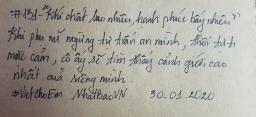 #131 - "Khí chất bao nhiêu, hạnh phúc bấy nhiêu"
Khi phụ nữ ngừng tự trấn an mình, thôi tự ti
mặc cảm, cô ấy sẽ tìm thấy cảnh giới cao
nhất của riêng mình.
#ViếtchoEm NhấtBaoVN 30.01.2020